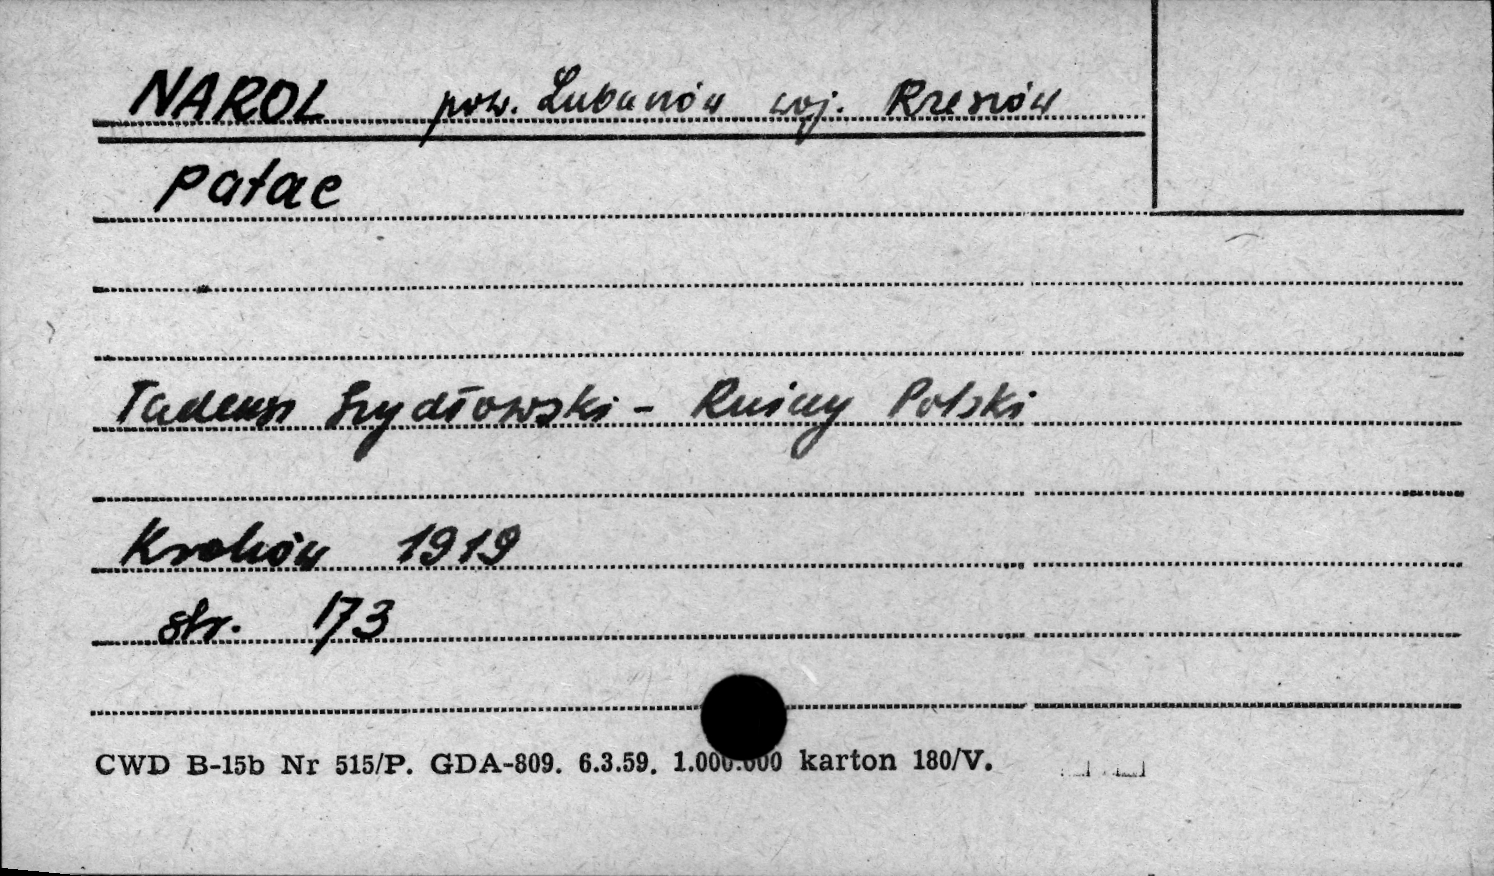 NAROL pow. Lubaczów woj. Rzeszów
Pałac
Tadeusz Szydłowski - Ruiny Polski
Kraków 1919
str. 173
CWD B-15b Nr 515/P. GDA-809. 6.3.59. 1.000.000 karton 180/V.